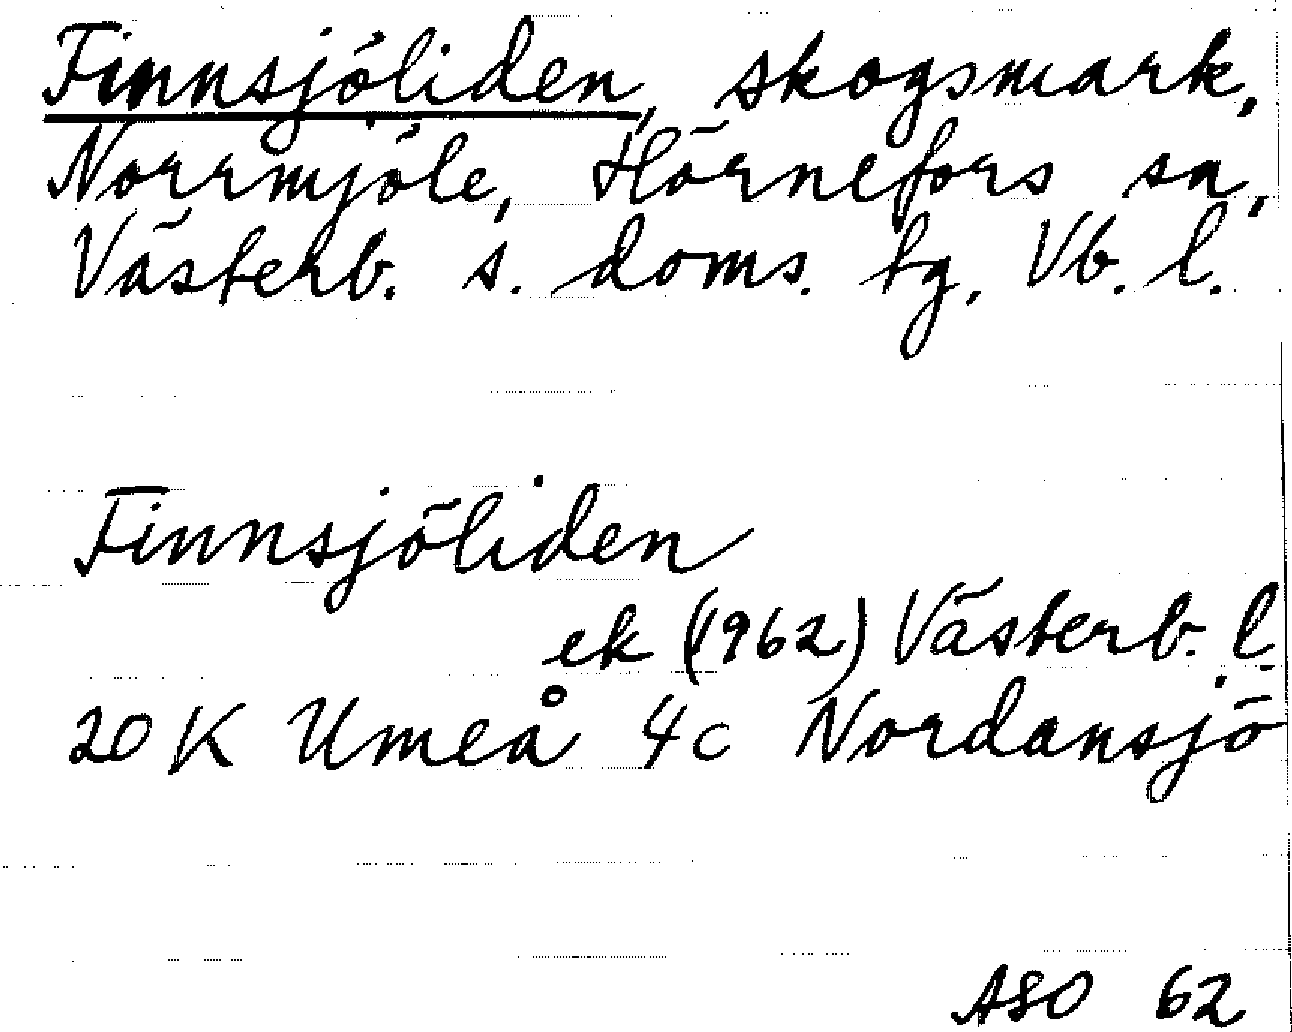 Finnsjöliden, skogsmark,
Norrmjöle, Hörnefors sn,
Västerb. s. doms. tg, Vb. l.
Finnsjöliden
ek (1962) Västerb. l.
20 K Umeå 4c Nordansjö
ASO 62